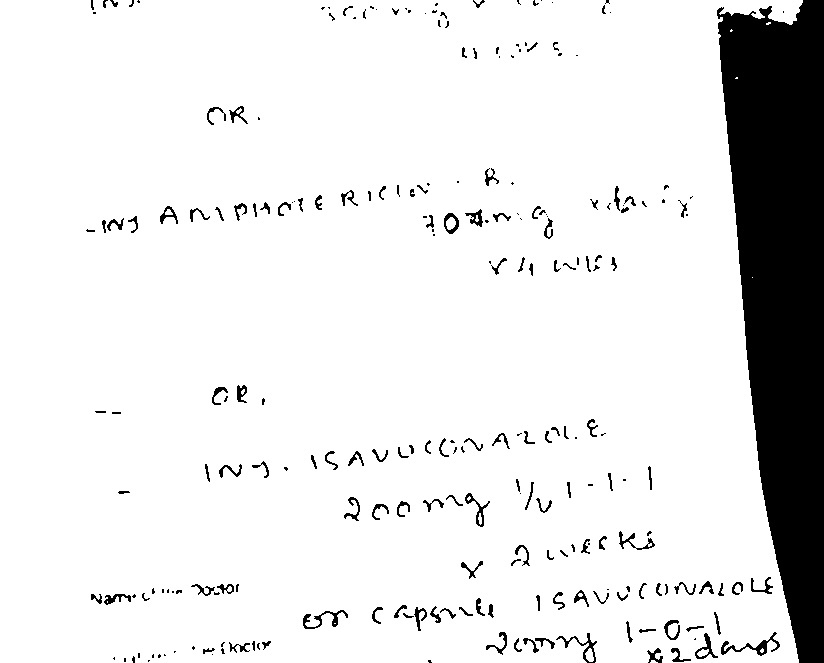 INJ.
300 mg
4 WKS.
OR.
-INJ AMPHOTERICIN . B.
70 mg x daily
x 4 WKS
-- OR,
- INJ. ISAVUCONAZOLE
200 mg I/V 1-1-1
x 2 weeks
Name of the Doctor
or capsule ISAVUCONAZOLE
the Doctor
200mg 1-0-1
x 2 days